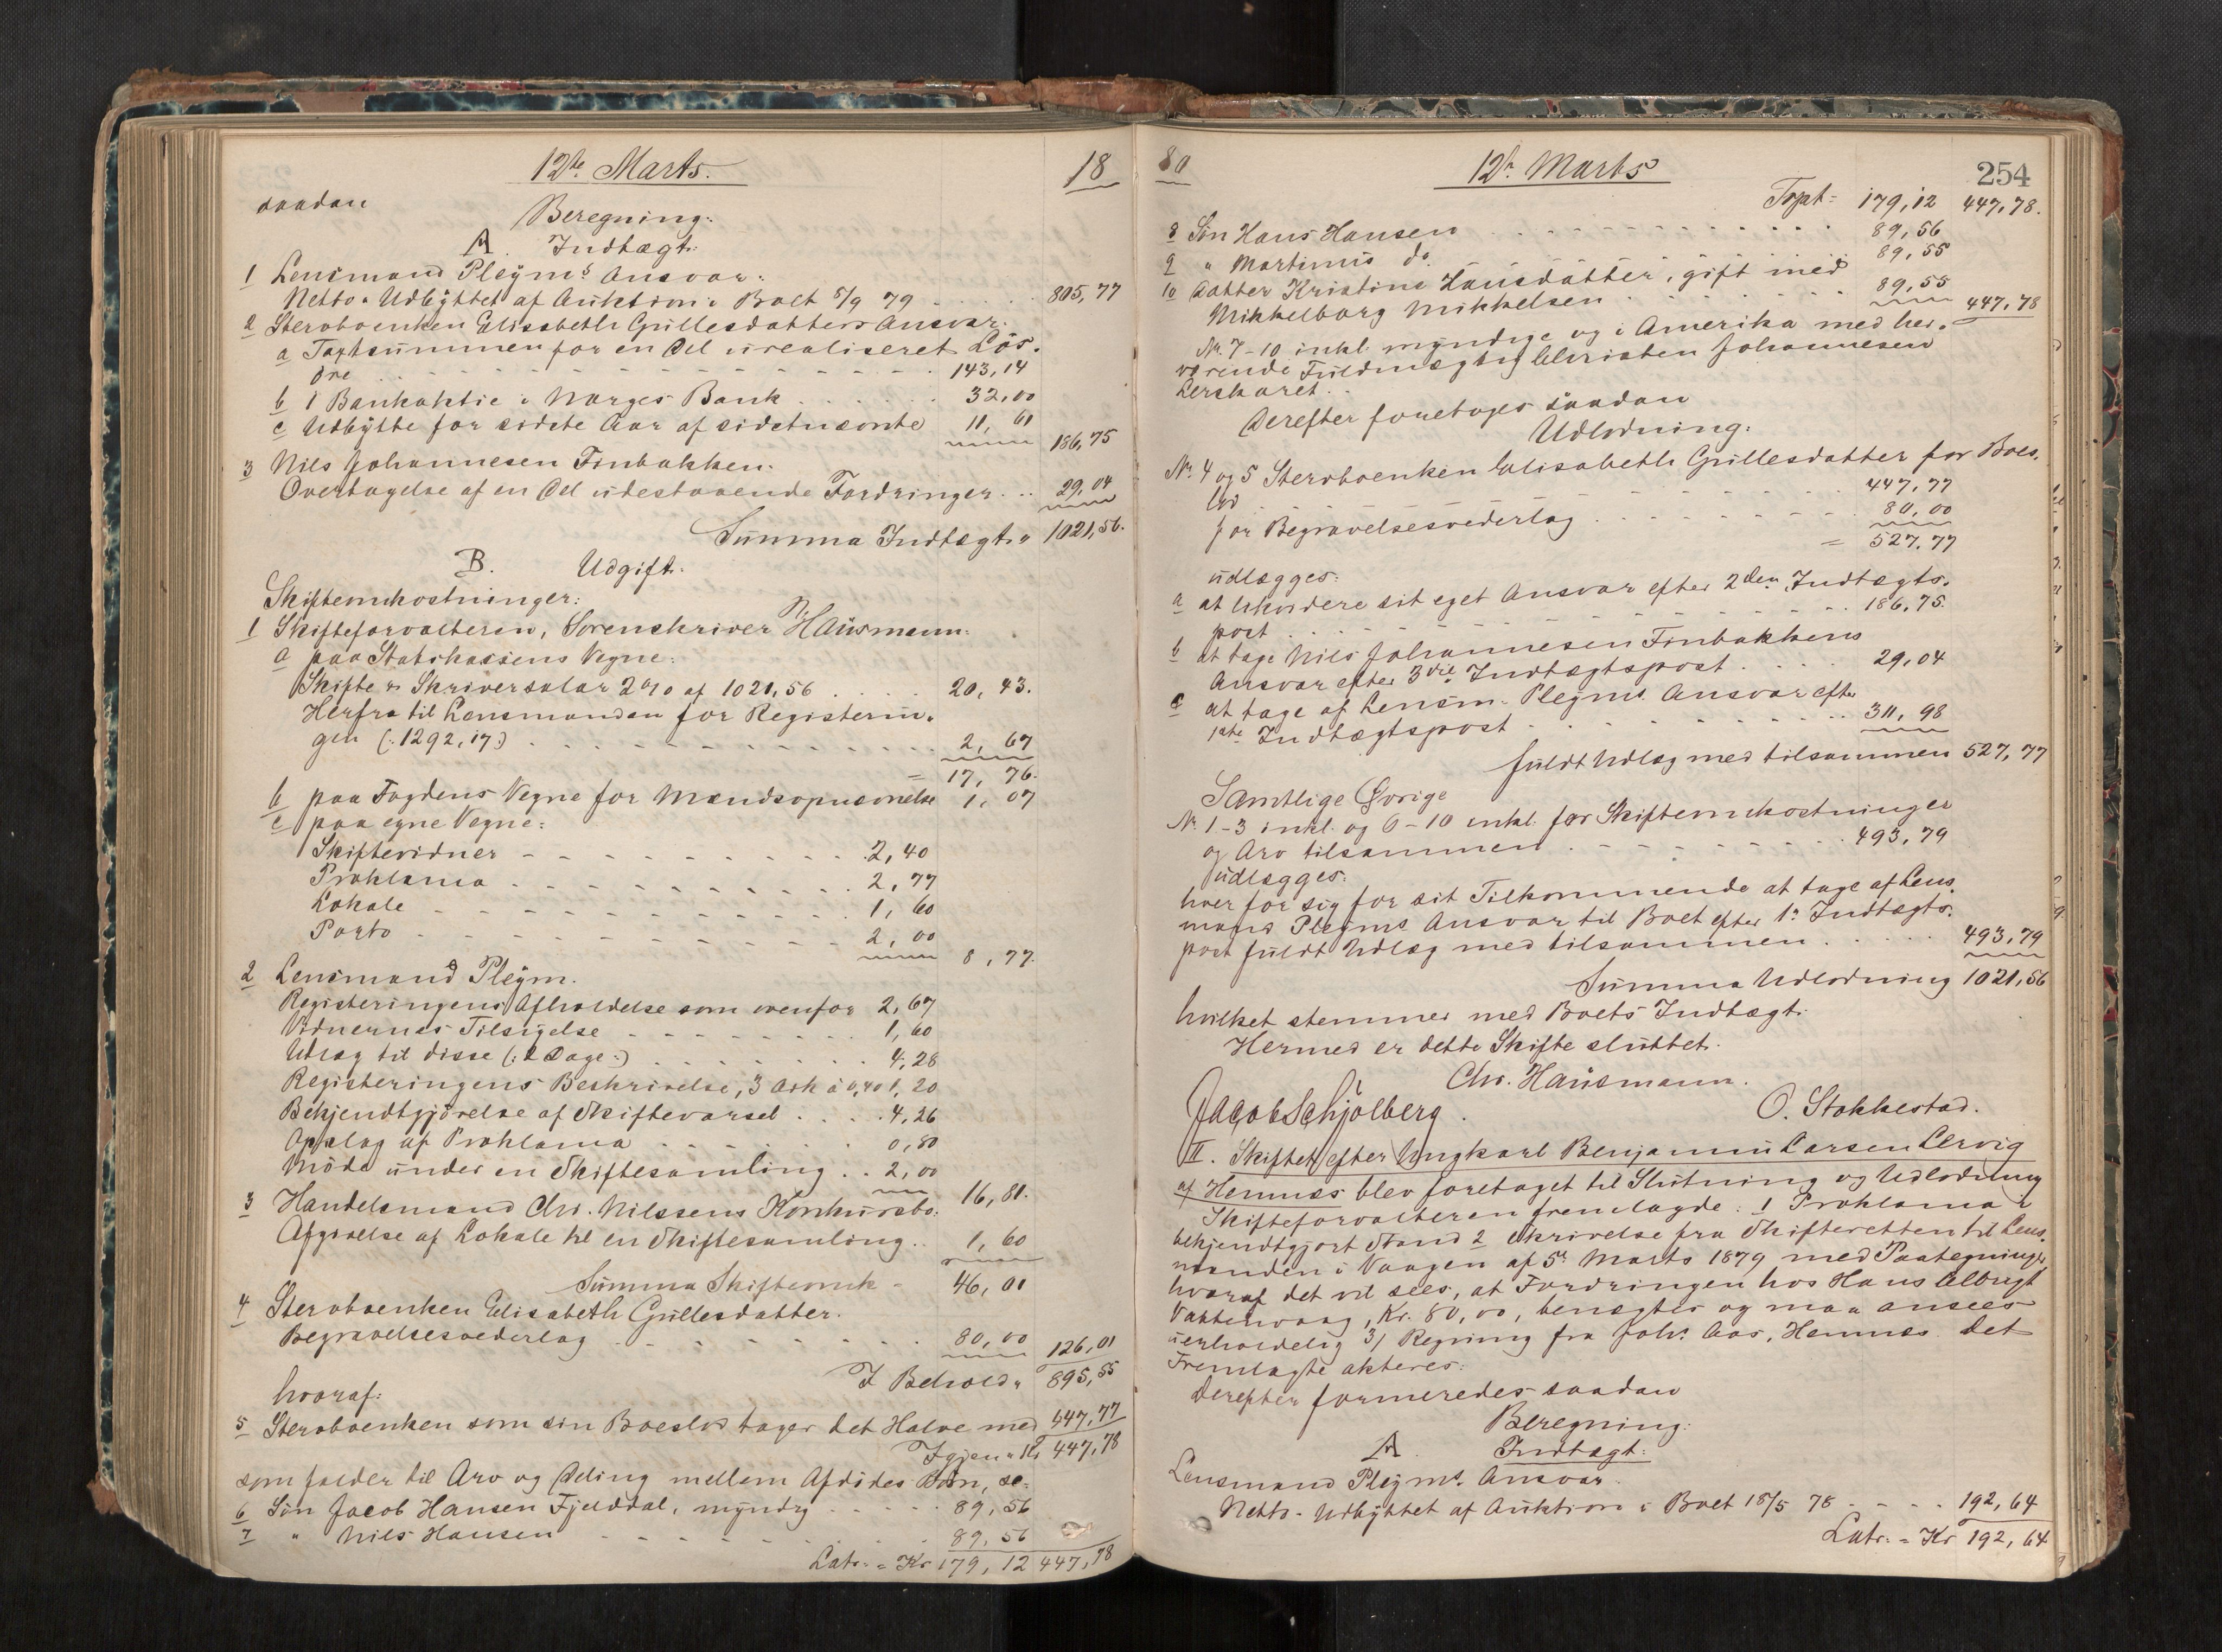 12te Marts.
18
saadan
Beregning:
A. Indtægt:
1 Lensmand Pleyms Ansvar:
Netto-Udbyttet af Auktion i Boet 8/9 79 . . . 805,77
2 Stervboenken Elisabeth Gullesdatters Ansvar:
a Taxtsummen for en Del urealiseret Løs-
øre . . . 143,14
b 1 Bankaktie i Norges Bank . . . 32,00
c Udbytte for sidste Aar af sidstnævnte 11,61
186,75
3 Nils Johannesen Finbakken.
Overtagelse af en Del udestaaende Fordringer . . 29,04
Summa Indtægt = 1021,56.
B. Udgift:
Skifteomkostninger:
1 Skifteforvalteren, Sorenskriver Hausmann:
a paa Statskassens Vegne:
Skifte & Skriversalær 2% af 1021,56 . . . 20,43.
Herfra til Lensmanden for Registerin-
gen (:1292,17:) . . . 2,67
= 17,76.
b paa Fogdens Vegne for Mandsopnævnelse 1,07
c paa egne Vegne:
Skiftevidner . . . 2,40
Proklama . . . 2,77
Lokale . . . 1,60
Porto . . . 2,00
8,77.
2 Lensmand Pleym.
Registeringens Afholdelse som ovenfor 2,67
Vidnernes Tilsigelse . . . 1,60
Udlæg til disse (:2 Dage:) . . . 4,28
Registeringens Beskrivelse, 3 Ark à 0,40 1,20
Bekjendtgjørelse af Skiftevarsel . . . 4,26
Opslag af Proklama . . . 0,80
Møde under en Skiftesamling . . 2,00
16,81.
3 Handelsmand Chr. Nilssens Konkursbo.
Afgivelse af Lokale til en Skiftesamling . . 1,60
Summa Skifteomk = 46,01
4 Stervboenken Elisabeth Gullesdatter.
Begravelsesvederlag . . . 80,00 126,01
I Behold = 895,55
hvoraf:
5 Stervboenken som sin Boeslod tager det Halve med 447,77
Igjen = Kr 447,78
som falder til Arv og Deling mellem Afdødes Børn, so:
6 Søn Jacob Hansen Fjelddal, myndig . . . 89,56
7 " Nils Hansen . . . 89,56
Latr. = Kr 179,12 447,78
80
12te Marts
254
Trspt = 179,12 447,78.
8 Søn Hans Hansen . . . 89,56
9 " Martinus do. 89,55
10 Datter Kristine Hansdatter, gift med
Mikkelborg Mikkelsen . . . 89,55 447,78
No. 7-10 inkl. myndige og i Amerika med her-
værende Fuldmægtig Christen Johannesen
Lerskaret.
Derefter foretages saadan
Udlodning:
No. 4 og 5 Stervboenken Elisabeth Gullesdatter for Boes-
lod . . . 447,77
for Begravelsesvederlag . . . 80,00
= 527,77
udlægges:
a at likvidere sit eget Ansvar efter 2den Indtægts-
post . . . 186,75.
b at tage Nils Johannesen Finbakkens
Ansvar efter 3die Indtægtspost . . . 29,04
c at tage af Lensm. Pleyms Ansvar efter
1ste Indtægtspost . . . 311,98
fuldt Udlæg med tilsammen 527,77
Samtlige Øvrige
No. 1-3 inkl. og 6-10 inkl. for Skifteomkostninger
og Arv tilsammen . . . 493,79
udlægges:
hver for sig for sit Tilkommende at tage af Lens-
mand Pleyms Ansvar til Boet efter 1ste Indtægts-
post fuldt Udlæg med tilsammen . . . 493,79
Summa Udlodning 1021,56
hvilket stemmer med Boets Indtægt.
Hermed er dette Skifte sluttet.
Chr. Hausmann.
Jacob Schjølberg. O. Stokkestad.
II. Skiftet efter Ungkarl Benjamin Larsen Lervig
af Hemnæs blev foretaget til Slutning og Udlodning
Skifteforvalteren fremlagde: 1 Proklama i
bekjendtgjort Stand 2 Skrivelse fra Skifteretten til Lens-
manden i Vaagen af 5te Marts 1879 med Paategninger,
hvoraf det vil sees, at Fordringen hos Hans Albrigt
Vattenvaag, Kr. 80,00, benægtes og maa ansees
uerholdelig 3/ Regning fra Johs. Aas, Hemnæs. Det
Fremlagte akteres.
Derefter formeredes saadan
Beregning:
A. Indtægt:
Lensmand Pleyms Ansvar.
Netto-Udbyttet af Auktion i Boet 18/5 78 . . . 192,64
Latr. = Kr 192,64